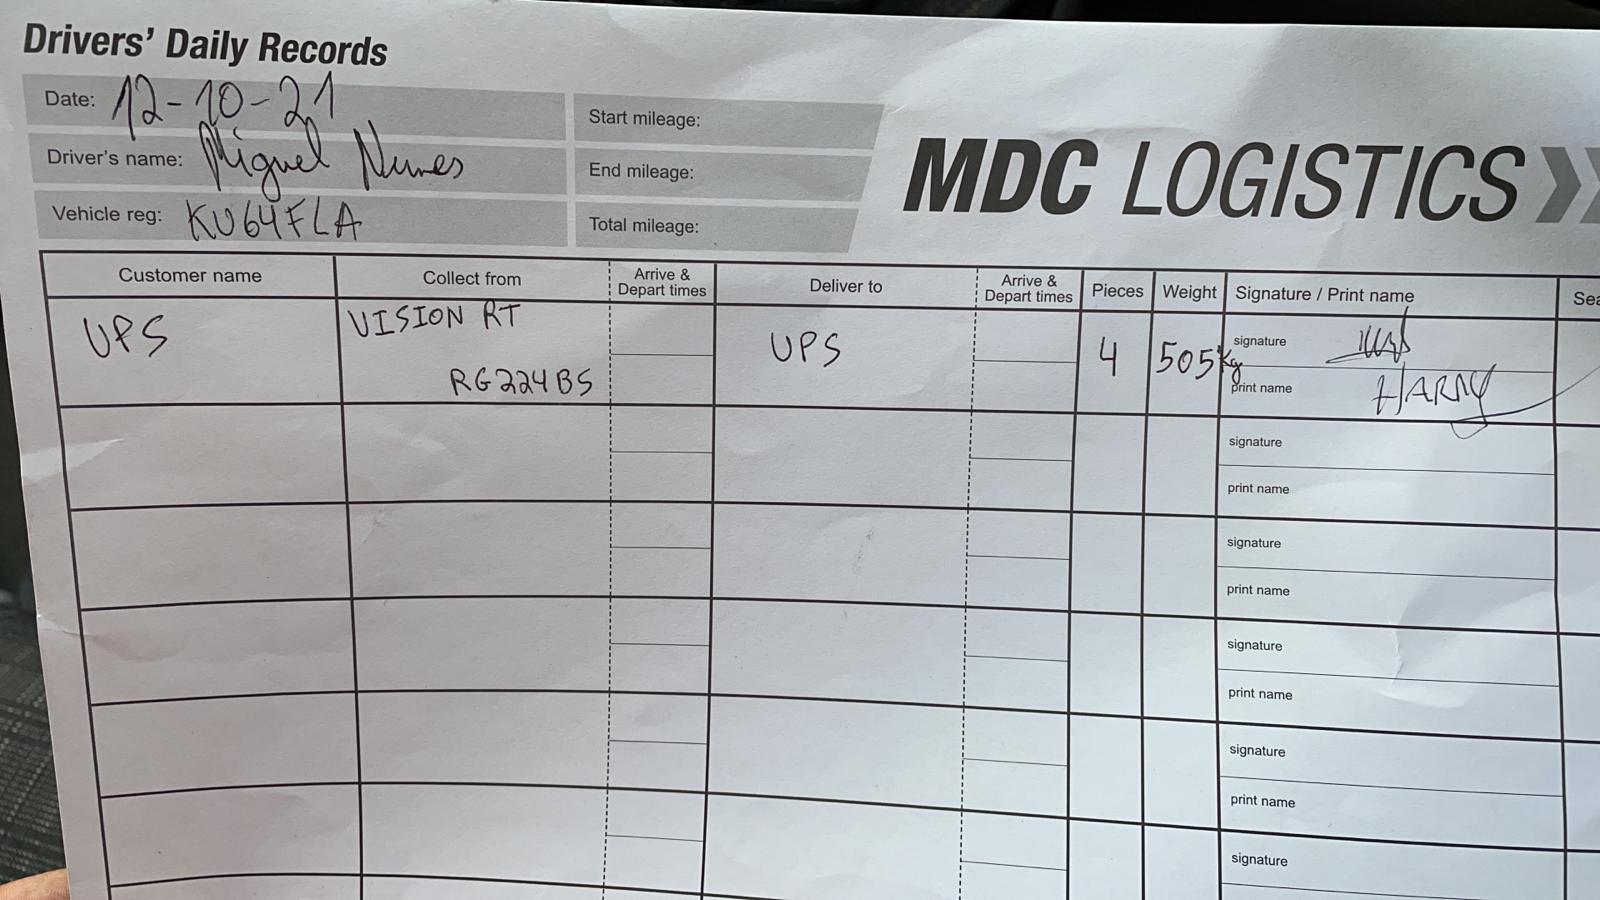 Drivers' Daily Records
Date: 12-10-21
Driver's name: Miguel Nunes
Vehicle reg: KU64FLA
Start mileage:
End mileage:
Total mileage:
MDC LOGISTICS
Customer name Collect from Arrive & Depart times Deliver to Arrive & Depart times Pieces Weight Signature / Print name
UPS VISION RT UPS 4 505kg signature
RG224BS print name HARRY
signature
print name
signature
print name
signature
print name
signature
print name
signature